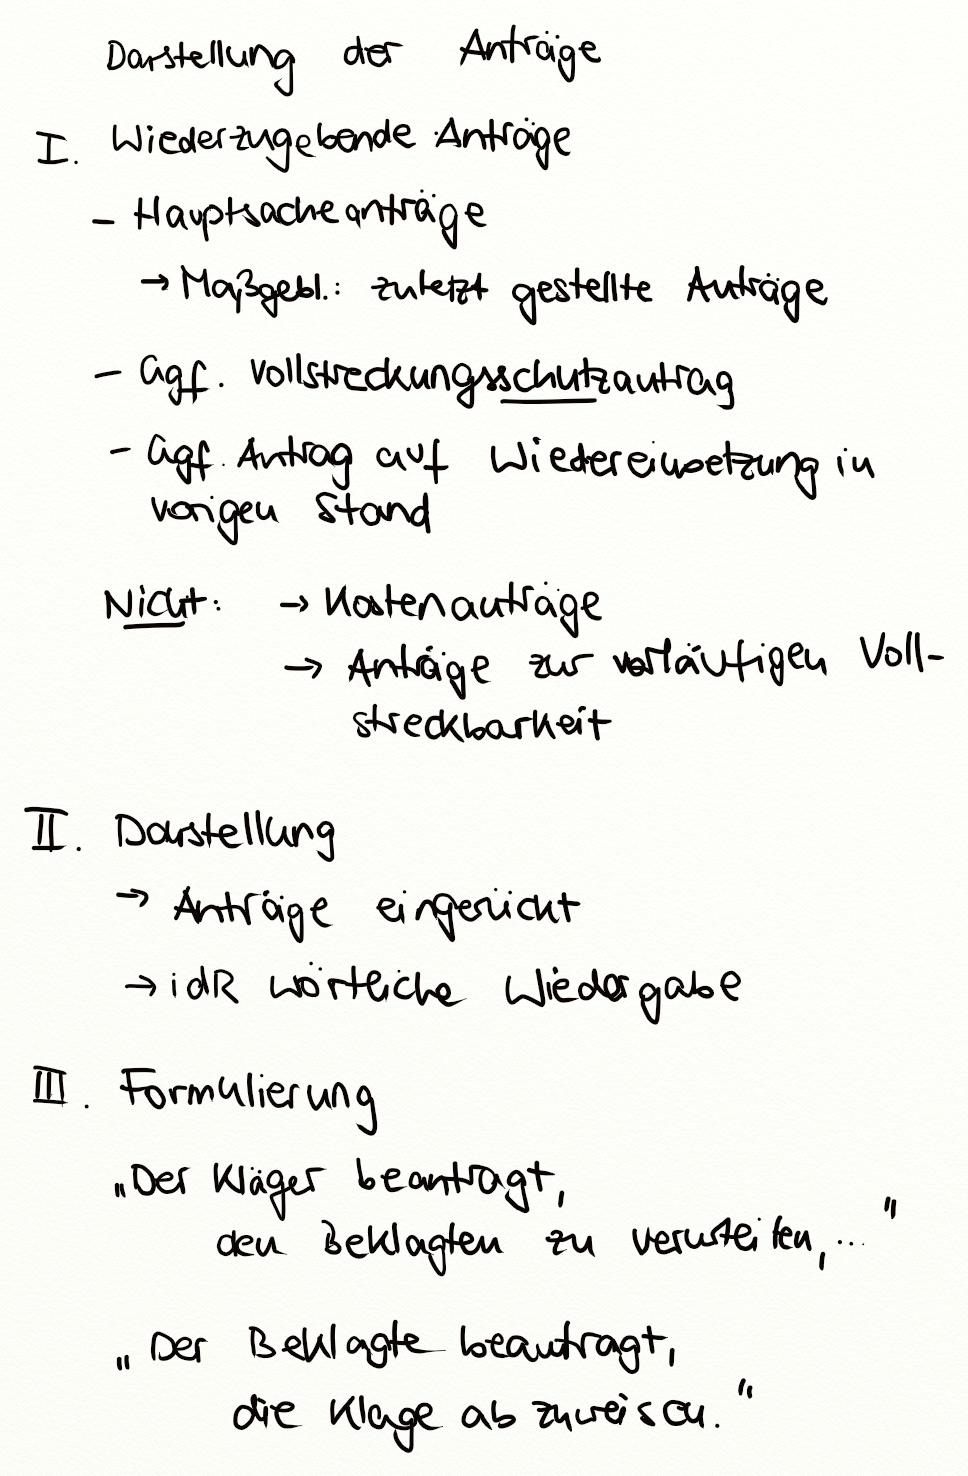 Darstellung der Anträge
I. Wiederzugebende Anträge
- Hauptsacheanträge
→ Maßgebl.: zuletzt gestellte Anträge
- Ggf. Vollstreckungsschutzantrag
- Ggf. Antrag auf Wiedereinsetzung in
vorigen Stand
Nicht: → Kostenanträge
→ Anträge zur vorläufigen Voll-
streckbarkeit
II. Darstellung
→ Anträge eingerückt
→ idR wörtliche Wiedergabe
III. Formulierung
„Der Kläger beantragt,
den Beklagten zu verurteilen,..."
„Der Beklagte beantragt,
die Klage abzuweisen."